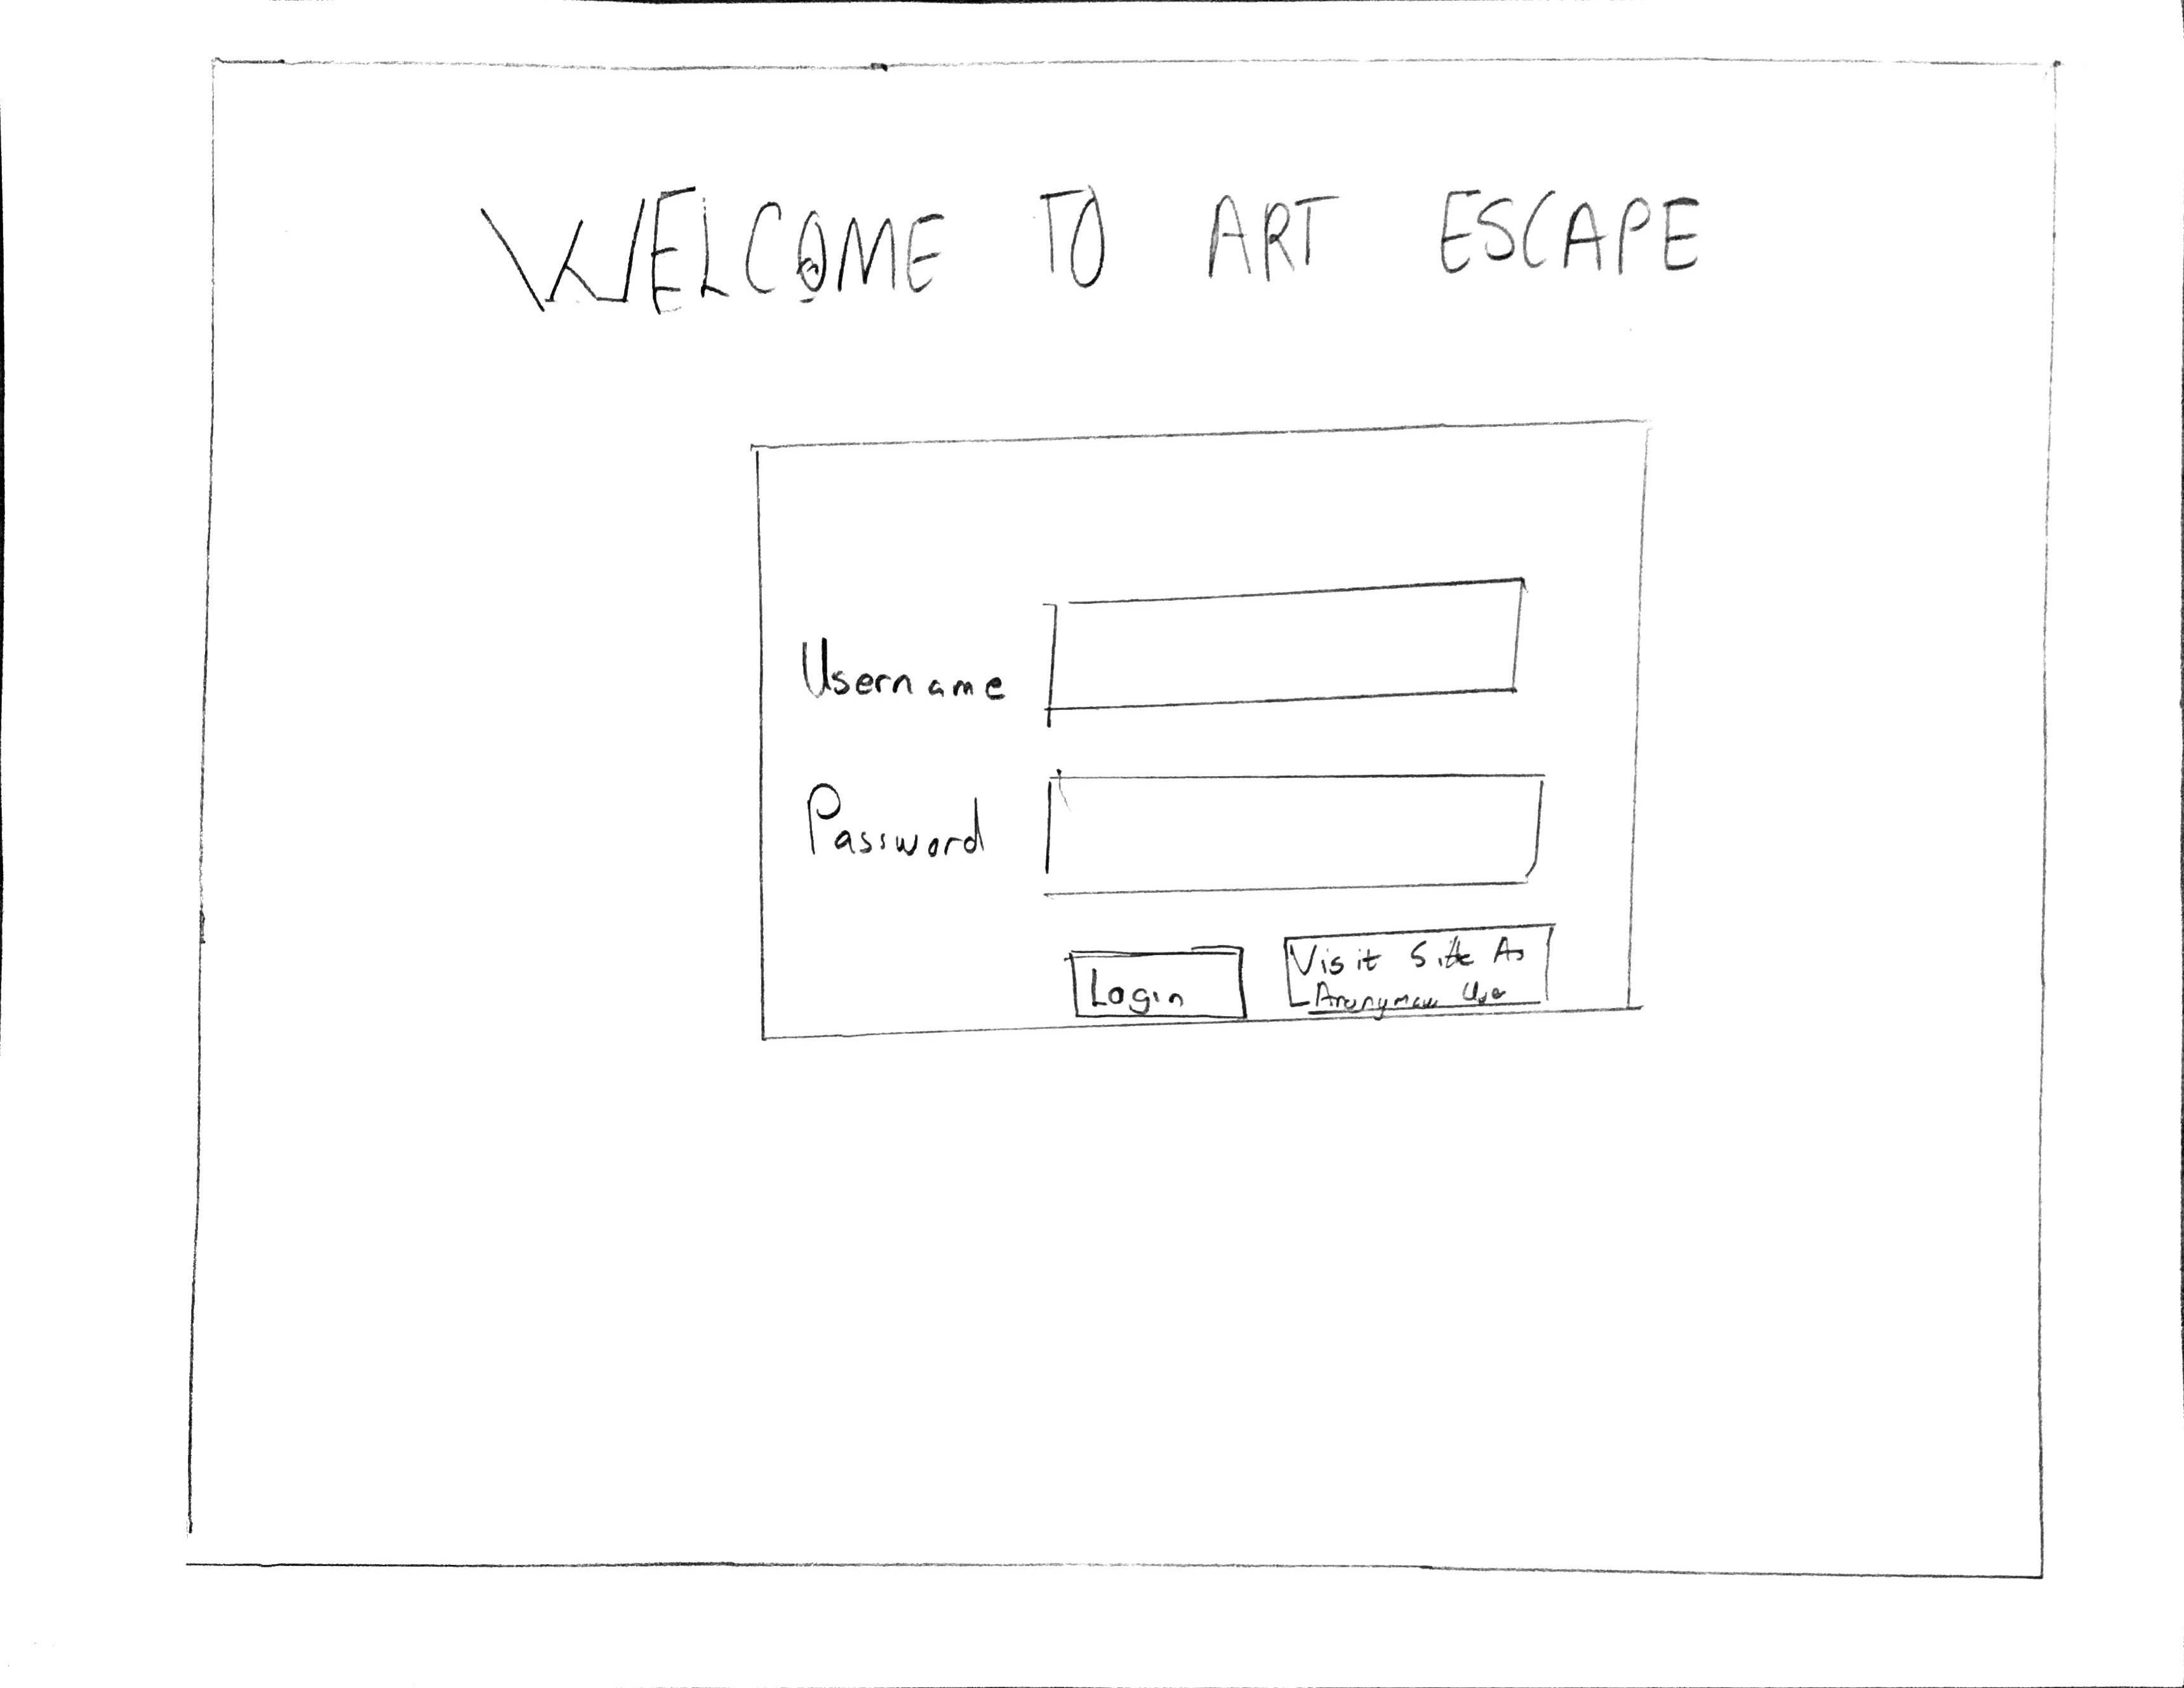 WELCOME TO ART ESCAPE
Username
Password
Login
Visit Site As
Anonymous User